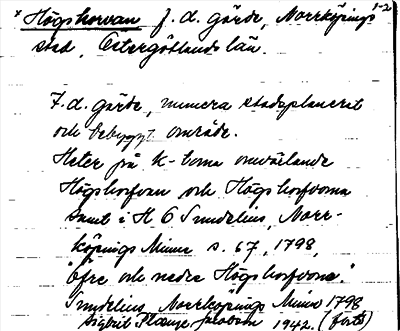 x Högskorvan f. d. gärde, Norrköpings 1-2
stad, Östergötlands län.
F. d. gärde, numera stadsplanerat
och bebyggt område.
Heter på K-borna omväxlande
Högskorfvan och Högskorfvorna
samt i H O Sundelius, Norr-
köpings Minne s. 67, 1798,
"öfre och nedre Högskorfvorna."
Sundelius, Norrköpings Minne 1798
Sigbrit Plænge 1942. (forts)